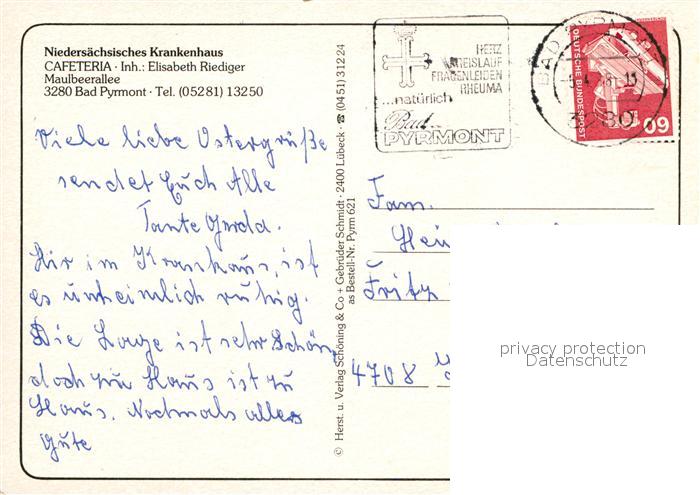 Niedersächsisches Krankenhaus
CAFETERIA · Inh.: Elisabeth Riediger
Maulbeerallee
3280 Bad Pyrmont · Tel. (05281) 13250
Viele liebe Ostergrüße
sendet Euch Alle
Tante Gerda.
Hir im Krankaus, ist
es unheimlich ruhig.
Die Lage ist sehr Schön,
doch zu Haus ist zu
Haus. Nochmals alles
gute
© Herst. u. Verlag Schöning & Co + Gebrüder Schmidt · 2400 Lübeck · ☎ (0451) 31224
as Bestell-Nr. Pyrm 621
HERZ
KREISLAUF
FRAUENLEIDEN
RHEUMA
...natürlich
Bad
PYRMONT
BAD PYRMONT
3280
DEUTSCHE BUNDESPOST
60
Fam.
Hein
Fritz
4708
privacy protection
Datenschutz